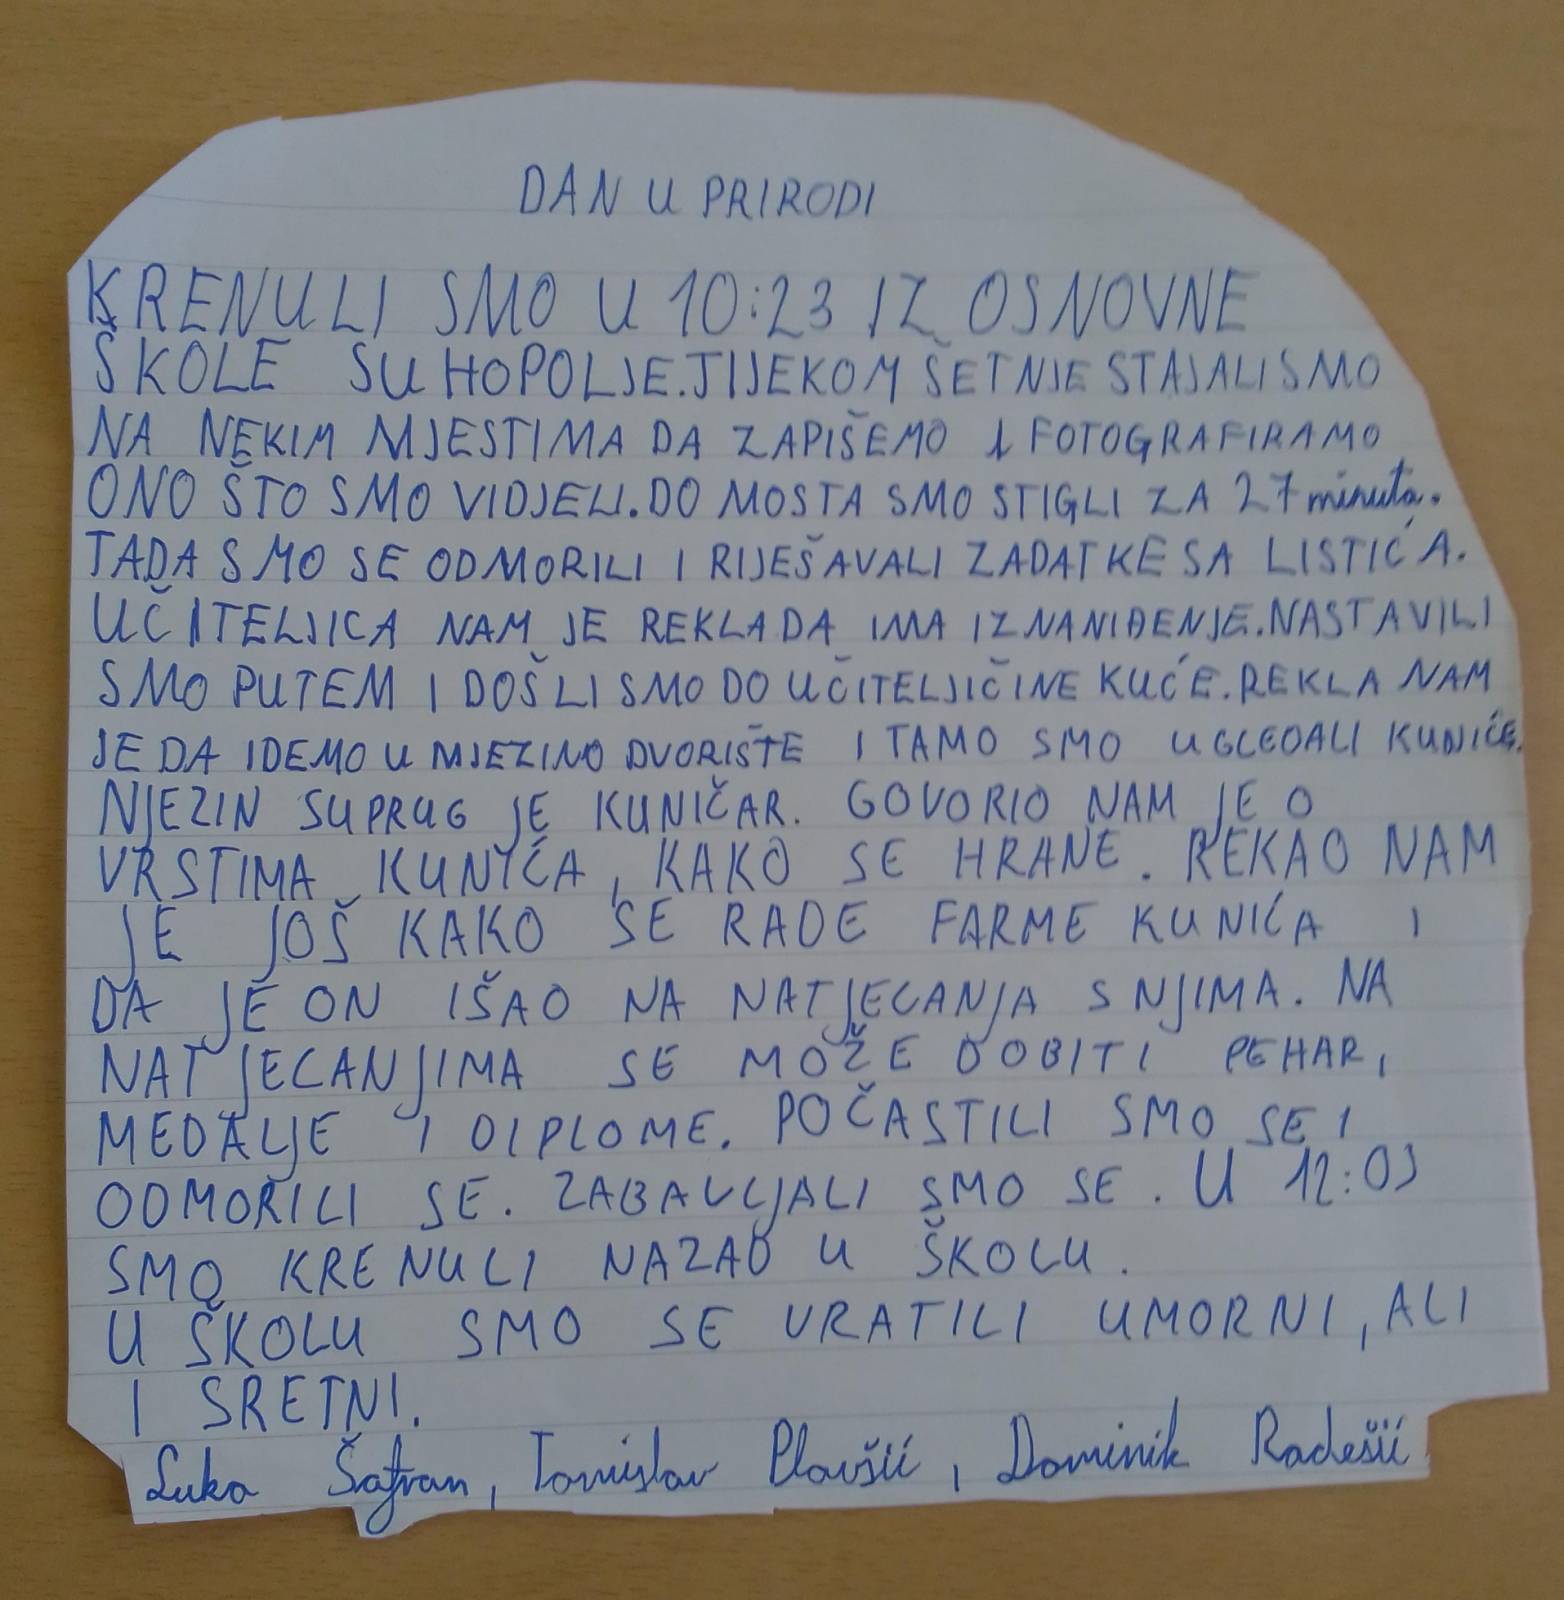 DAN U PRIRODI
KRENULI SMO U 10:23 IZ OSNOVNE
ŠKOLE SUHOPOLJE. TIJEKOM ŠETNJE STAJALI SMO
NA NEKIM MJESTIMA DA ZAPIŠEMO I FOTOGRAFIRAMO
ONO ŠTO SMO VIDJELI. DO MOSTA SMO STIGLI ZA 27 minuta.
TADA SMO SE ODMORILI I RIJEŠAVALI ZADATKE SA LISTIĆA.
UČITELJICA NAM JE REKLA DA IMA IZNANIĐENJE. NASTAVILI
SMO PUTEM I DOŠLI SMO DO UČITELJIČINE KUĆE. REKLA NAM
JE DA IDEMO U NJEZINO DVORIŠTE I TAMO SMO UGLEDALI KUNIĆE.
NJEZIN SUPRUG JE KUNIČAR. GOVORIO NAM JE O
VRSTIMA KUNIĆA, KAKO SE HRANE. REKAO NAM
JE JOŠ KAKO SE RADE FARME KUNIĆA I
DA JE ON IŠAO NA NATJECANJA S NJIMA. NA
NATJECANJIMA SE MOŽE DOBITI PEHAR,
MEDALJE I DIPLOME. POČASTILI SMO SE I
ODMORILI SE. ZABAVLJALI SMO SE. U
SMO KRENULI NAZAD U ŠKOLU.
U ŠKOLU SMO SE VRATILI UMORNI, ALI
I SRETNI.
Luka Šafran, Tomislav Plavšić, Dominik Radešić